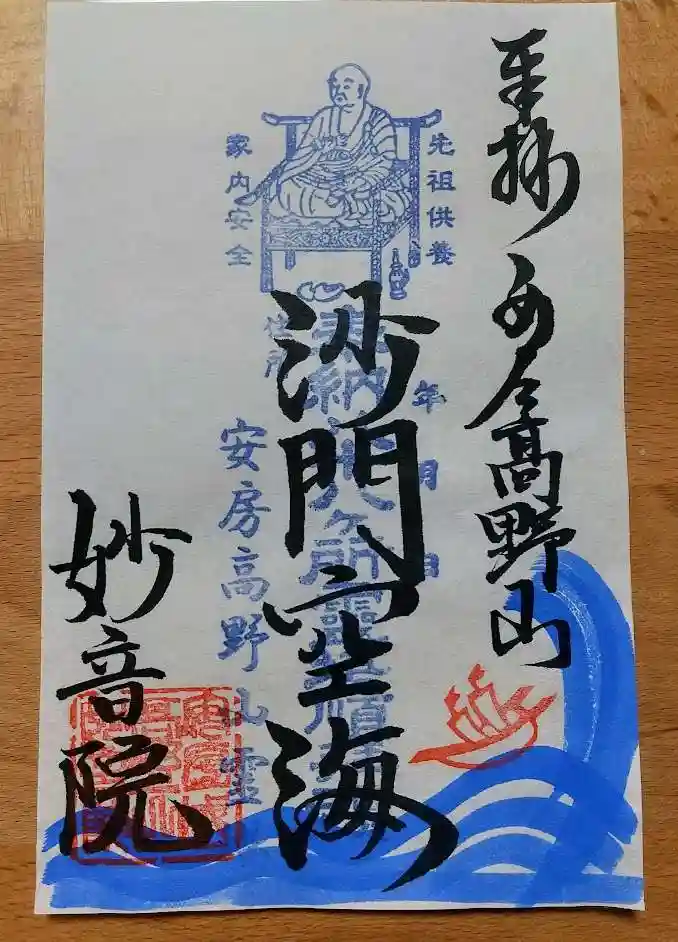 奉拝 安房高野山
先祖供養
年 月 日
沙門空海
家内安全
住所
安房高野山霊
妙音院